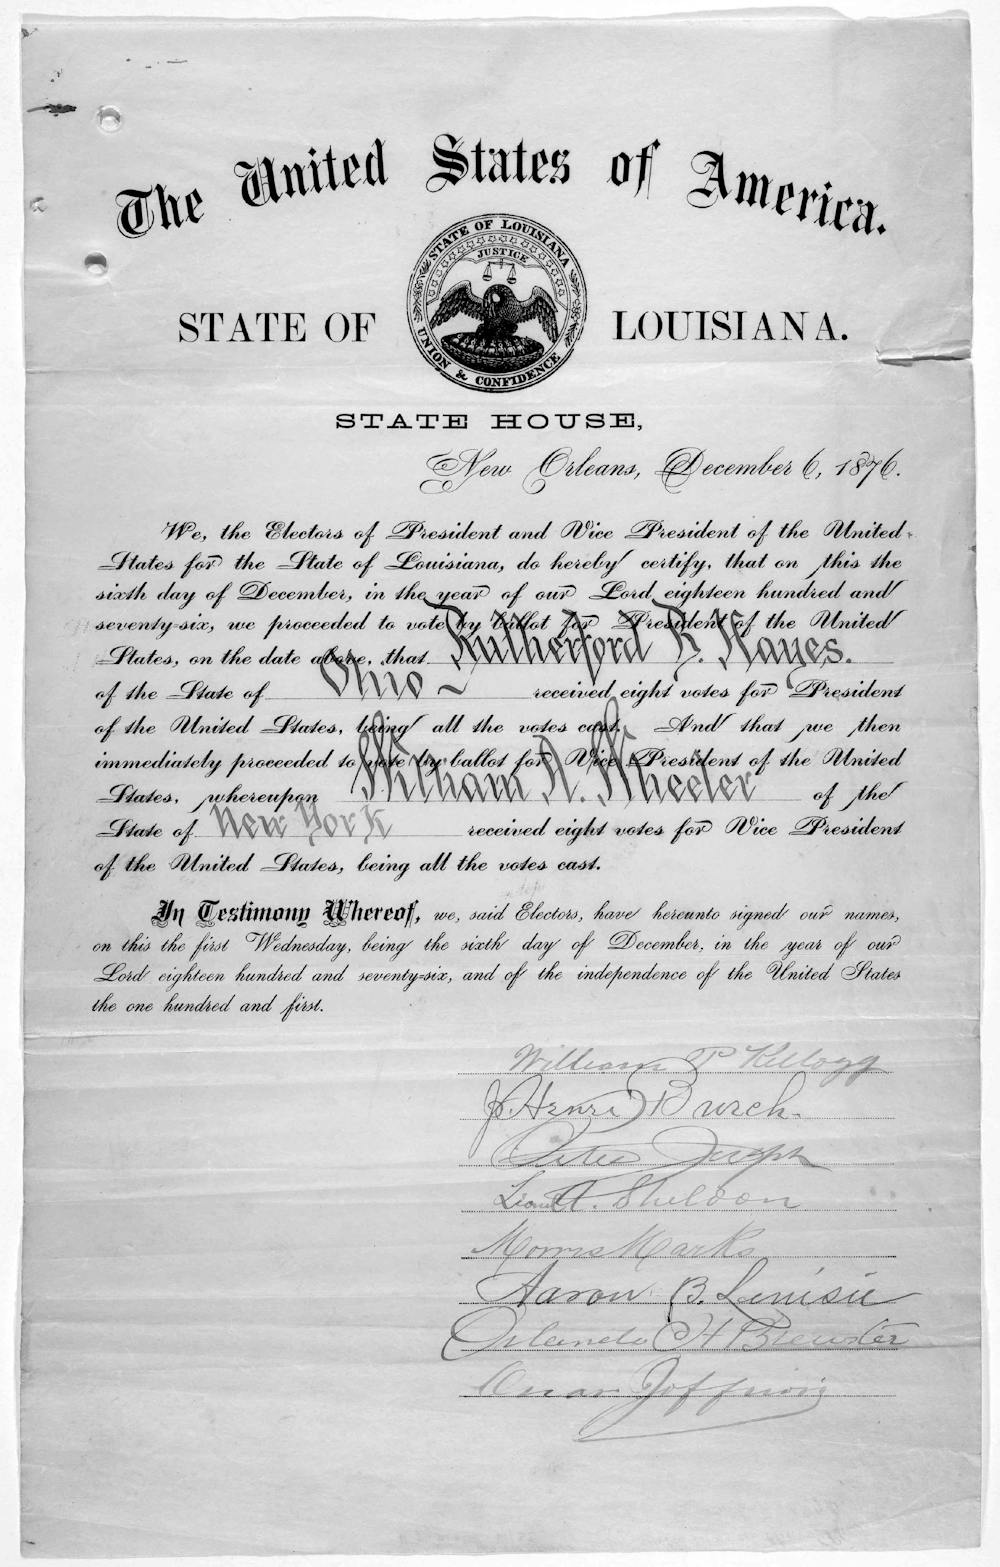 The United States of America.
STATE OF LOUISIANA
JUSTICE
UNION & CONFIDENCE
STATE OF LOUISIANA.
STATE HOUSE,
New Orleans, December 6, 1876.
We, the Electors of President and Vice President of the United
States for the State of Louisiana, do hereby certify, that on this the
sixth day of December, in the year of our Lord eighteen hundred and
seventy-six, we proceeded to vote by ballot for President of the United
States, on the date above, that Rutherford B. Hayes.
of the State of Ohio received eight votes for President
of the United States, being all the votes cast. And that we then
immediately proceeded to vote by ballot for Vice President of the United
States, whereupon William A. Wheeler of the
State of New York received eight votes for Vice President
of the United States, being all the votes cast.
In Testimony Whereof, we, said Electors, have hereunto signed our names,
on this the first Wednesday, being the sixth day of December, in the year of our
Lord eighteen hundred and seventy-six, and of the independence of the United States
the one hundred and first.
William P Kellogg
J. Henri Burch.
Peter Joseph
Lionel A. Sheldon
Morris Marks
Aaron B. Levisie
Orlando H Brewster
Oscar Joffrion